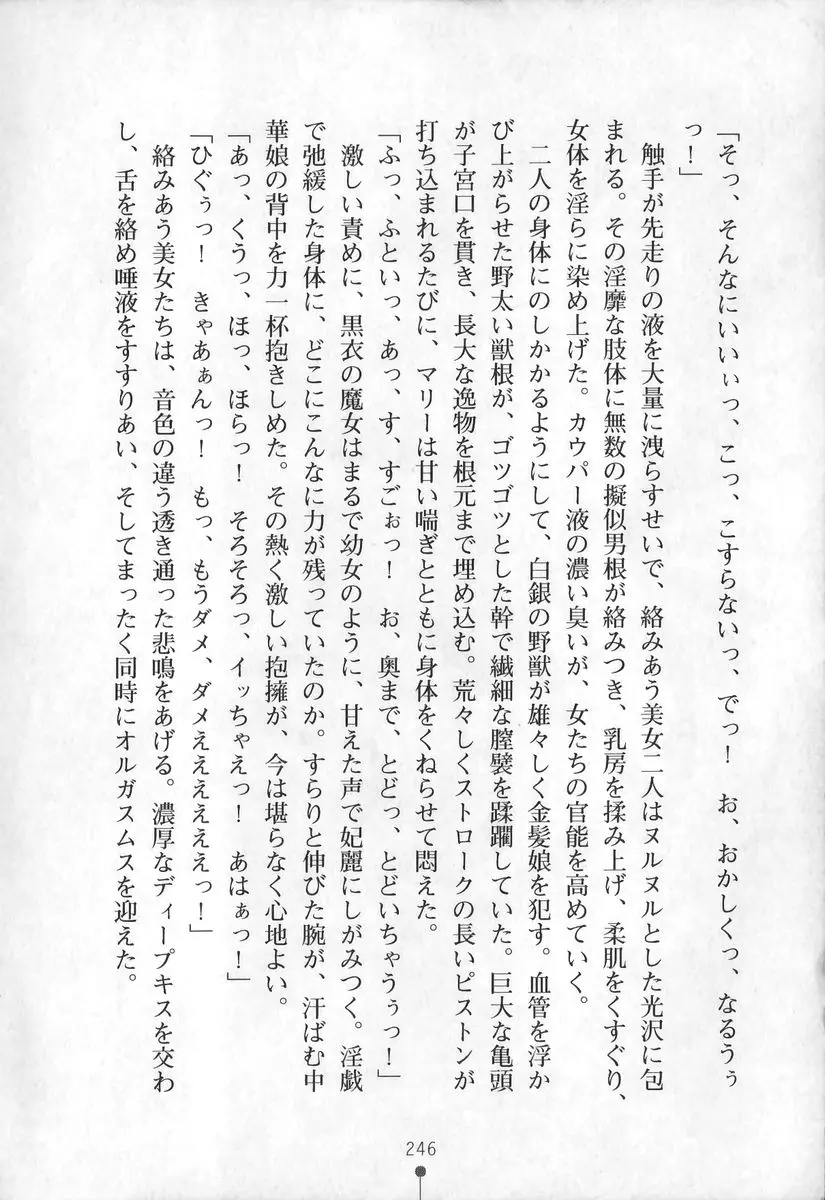 「そっ、そんなにいいぃっ、こっ、こすらないっ、でっ！　お、おかしくっ、なるうぅ
っ！」
　触手が先走りの液を大量に洩らすせいで、絡みあう美女二人はヌルヌルとした光沢に包
まれる。その淫靡な肢体に無数の擬似男根が絡みつき、乳房を揉み上げ、柔肌をくすぐり、
女体を淫らに染め上げた。カウパー液の濃い臭いが、女たちの官能を高めていく。
　二人の身体にのしかかるようにして、白銀の野獣が雄々しく金髪娘を犯す。血管を浮か
び上がらせた野太い獣根が、ゴツゴツとした幹で繊細な膣襞を蹂躙していた。巨大な亀頭
が子宮口を貫き、長大な逸物を根元まで埋め込む。荒々しくストロークの長いピストンが
打ち込まれるたびに、マリーは甘い喘ぎとともに身体をくねらせて悶えた。
「ふっ、ふといっ、あっ、す、すごぉっ！　お、奥まで、とどっ、とどいちゃうぅっ！」
　激しい責めに、黒衣の魔女はまるで幼女のように、甘えた声で妃麗にしがみつく。淫戯
で弛緩した身体に、どこにこんなに力が残っていたのか。すらりと伸びた腕が、汗ばむ中
華娘の背中を力一杯抱きしめた。その熱く激しい抱擁が、今は堪らなく心地よい。
「あっ、くうっ、ほっ、ほらっ！　そろそろっ、イッちゃえっ！　あはぁっ！」
「ひぐぅっ！　きゃあぁんっ！　もっ、もうダメ、ダメえええええっ！」
　絡みあう美女たちは、音色の違う透き通った悲鳴をあげる。濃厚なディープキスを交わ
し、舌を絡め唾液をすすりあい、そしてまったく同時にオルガスムスを迎えた。
246